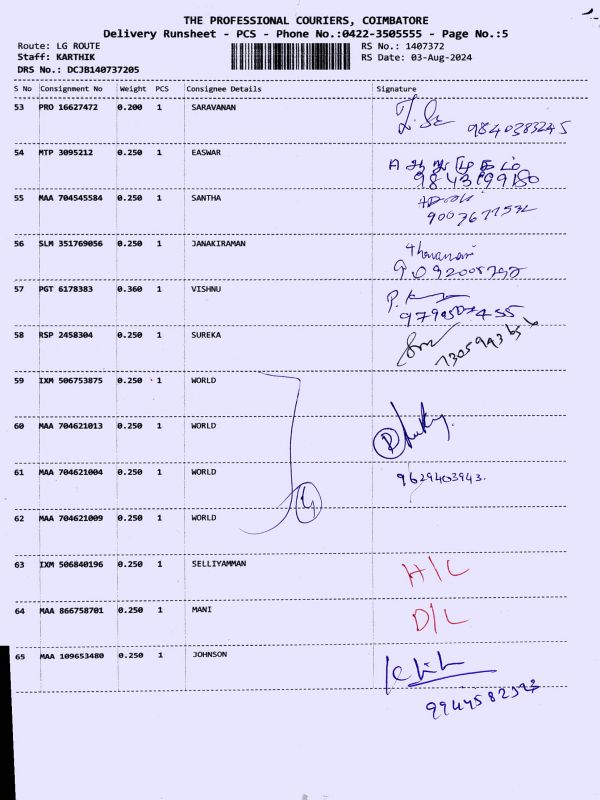 THE PROFESSIONAL COURIERS, COIMBATORE
Delivery Runsheet - PCS - Phone No.:0422-3505555 - Page No.:5
Route: LG ROUTE RS No.: 1407372
Staff: KARTHIK RS Date: 03-Aug-2024
DRS No.: DCJB140737205
S No Consignment No Weight PCS Consignee Details Signature
53 PRO 16627472 0.200 1 SARAVANAN
9840383245
54 MTP 3095212 0.250 1 EASWAR
55 MAA 704545584 0.250 1 SANTHA
56 SLM 351769056 0.250 1 JANAKIRAMAN
57 PGT 6178383 0.360 1 VISHNU
58 RSP 2458304 0.250 1 SUREKA
59 IXM 506753875 0.250 1 WORLD
60 MAA 704621013 0.250 1 WORLD
61 MAA 704621004 0.250 1 WORLD 9629403943.
62 MAA 704621009 0.250 1 WORLD
4
63 IXM 506840196 0.250 1 SELLIYAMMAN H/L
64 MAA 866758701 0.250 1 MANI D/L
65 MAA 109653480 0.250 1 JOHNSON